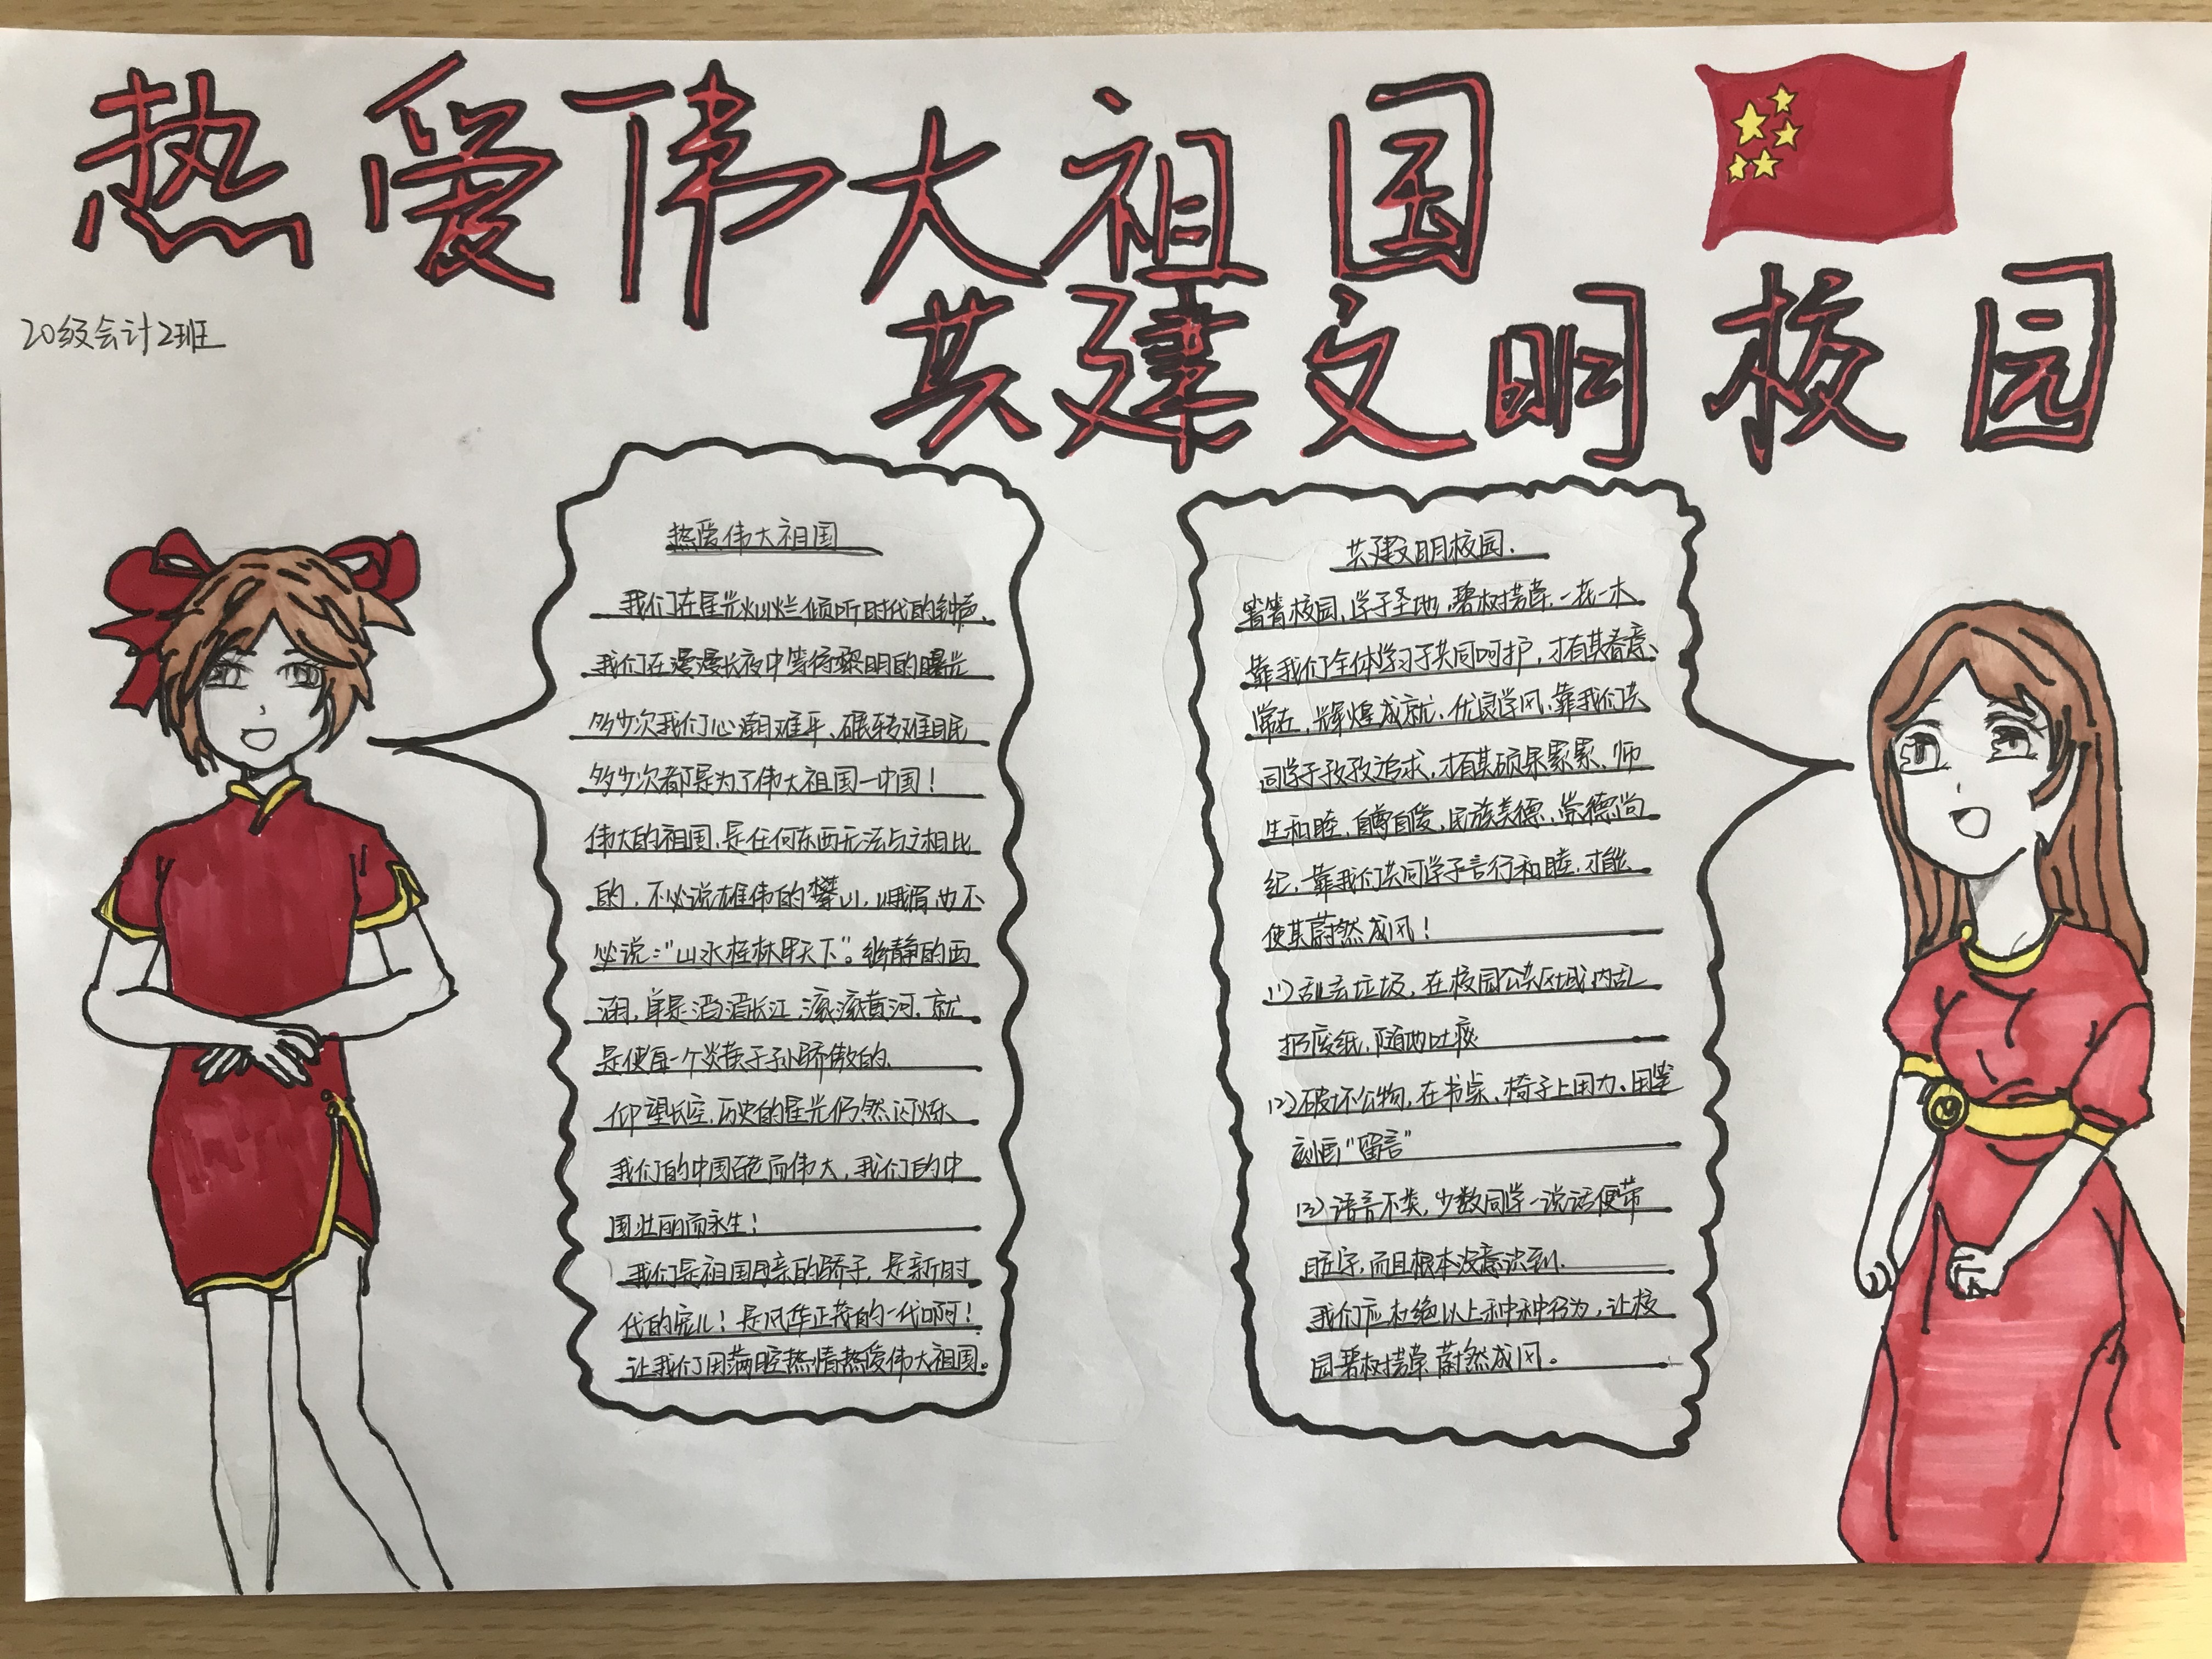 热爱伟大祖国
共建文明校园
20级会计2班
热爱伟大祖国
我们在星光灿烂倾听时代的钟声、
我们在漫漫长夜中等待黎明的曙光
多少次我们心潮难平、辗转难眠
多少次都是为了伟大祖国一中国！
伟大的祖国,是任何东西无法与之相比
的,不必说雄伟的攀山,峨眉也不
必说:"山水桂林甲天下"。的西
湖,单是滔滔长江,滚滚黄河,就
是使每一个炎黄子孙骄傲的、
仰望长空,历史的星光仍然闪烁、
我们的中国而伟大,我们的中
国壮丽而永生!
我们是祖国母亲的骄子,是新时
代的宠儿!是风华正茂的一代啊!
让我们用满腔热情热爱伟大祖国。
共建文明校园.
菁菁校园,学子圣地,碧树芳草,一花一木
靠我们全体学习子共同呵护,才有其春意、
常在,辉煌成就、优良学风,靠我们共
同学子孜孜追求,才有其硕果累累,师
生和睦,自尊自爱,民族美德,崇德尚
纪,靠我们共同学子言行和睦,才能
使其蔚然成风!
(1)乱丢垃圾,在校园公共区域内乱
扔废纸,随地吐痰
(2)破坏公物,在书桌、椅子上用力、用笔
刻画"留言"
(3)语言不类,少数同学一说话便带
脏字,而且根本没意识到.
我们应杜绝以上种种行为,让校
园碧树芳草蔚然成风。